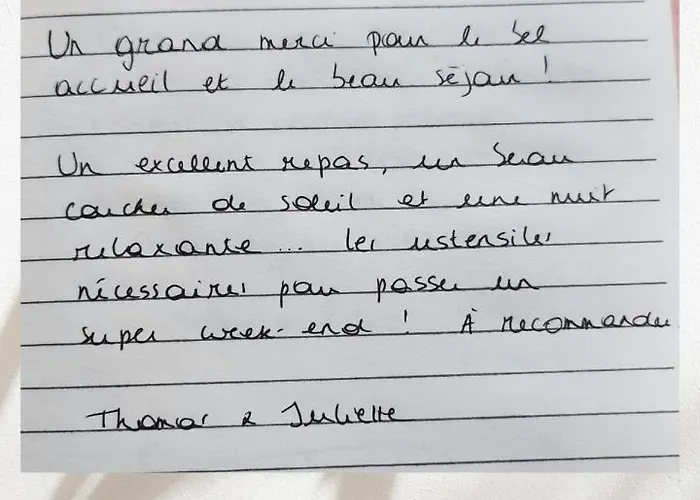 Un grand merci pour le bel
accueil et le beau séjour !
Un excellent repas, un beau
coucher de soleil et une nuit
relaxante... les ustensiles
nécessaires pour passer un
super week-end ! À recommander
Thomas & Juliette